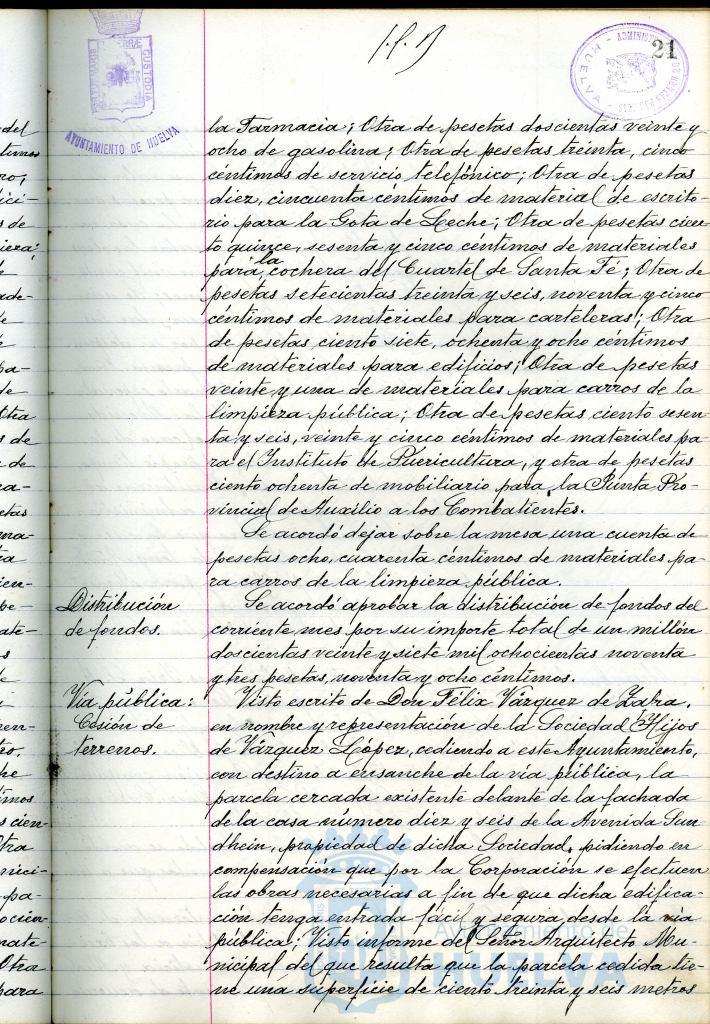 21
AYUNTAMIENTO DE HUELVA
CUSTODIA
HUELVA
la Farmacia; Otra de pesetas doscientas veinte y
ocho de gasolina; Otra de pesetas treinta, cinco
centimos de servicio telefónico; Otra de pesetas
diez, cincuenta céntimos de material de escrito-
rio para la Gota de Leche; Otra de pesetas cien-
to quince, sesenta y cinco céntimos de materiales
para la cochera del Cuartel de Santa Fé; Otra de
pesetas setecientas treinta y seis, noventa y cinco
céntimos de materiales para carteleras; Otra
de pesetas ciento siete, ochenta y ocho céntimos
de materiales para edificios; Otra de pesetas
veinte y una de materiales para carros de la
limpieza pública; Otra de pesetas ciento sesen-
ta y seis, veinte y cinco céntimos de materiales pa-
ra el Instituto de Puericultura, y otra de pesetas
ciento ochenta de mobiliario para la Junta Pro-
vincial de Auxilio a los Combatientes.
Se acordó dejar sobre la mesa una cuenta de
pesetas ocho, cuarenta céntimos de materiales pa-
ra carros de la limpieza pública.
Distribución
de fondos.
Se acordó aprobar la distribución de fondos del
corriente mes por su importe total de un millón
doscientas veinte y siete mil ochocientas noventa
y tres pesetas, noventa y ocho céntimos.
Vía pública:
Cesión de
terrenos.
Visto escrito de Don Félix Vázquez de Zafra,
en nombre y representación de la Sociedad Hijos
de Vázquez López, cediendo a este Ayuntamiento,
con destino a ensanche de la vía pública, la
parcela cercada existente delante de la fachada
de la casa número diez y seis de la Avenida Sun-
dhein, propiedad de dicha Sociedad, pidiendo en
compensación que por la Corporación se efectuen
las obras necesarias a fin de que dicha edifica-
ción tenga entrada fácil y segura desde la via
pública; Visto informe del Señor Arquitecto Mu-
nicipal del que resulta que la parcela cedida tie-
ne una superficie de ciento treinta y seis metros
Ayuntamiento de
HUELVA